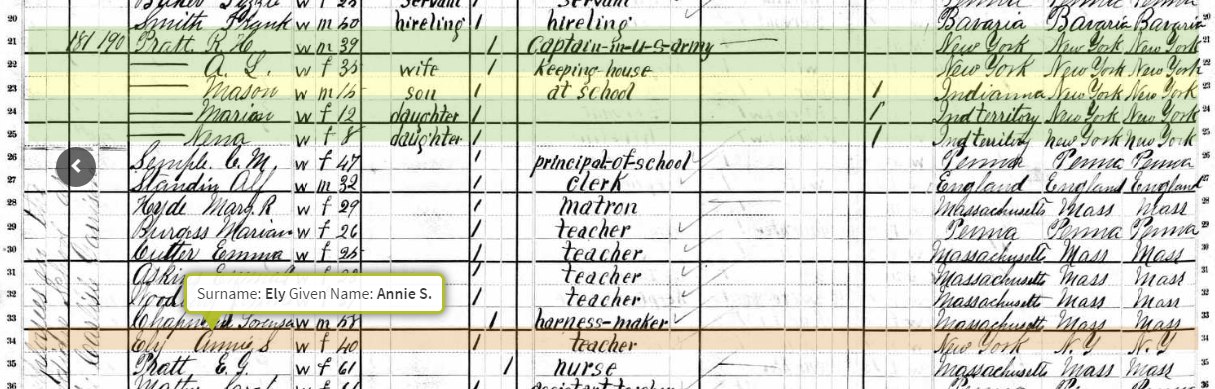 servant
20 Smith Frank w m 50 hireling hireling Bavaria Bavaria Bavaria 20
21 181 190 Pratt R H w m 39 1 Captain-in-U-S-army New York New York New York 21
22 — A. L. w f 35 wife 1 keeping-house New York New York New York 22
23 — Mason w m 15 son 1 at school 1 Indianna New York New York 23
24 — Marian w f 12 daughter 1 1 Ind territory New York New York 24
25 — Nena w f 8 daughter 1 1 Ind territory New York New York 25
26 Semple C. M. w f 47 1 principal-of-school Penna Penna Penna 26
27 Standin Alf w m 32 1 clerk England England England 27
28 Hyde Mary R w f 29 1 matron Massachusetts Mass Mass 28
29 Burgess Marian w f 26 1 teacher Penna Penna Penna 29
30 Cutter Emma w f 25 1 teacher Massachusetts Mass Mass 30
31 1 teacher Massachusetts Mass Mass 31
Surname: Ely Given Name: Annie S.
32 1 teacher Massachusetts Mass Mass 32
33 w m 1 harness-maker Massachusetts Mass Mass 33
34 Ely Annie S w f 40 1 teacher New York N. Y N. Y 34
35 Pratt E. G. w f 61 1 nurse Massachusetts Mass Mass 35
36